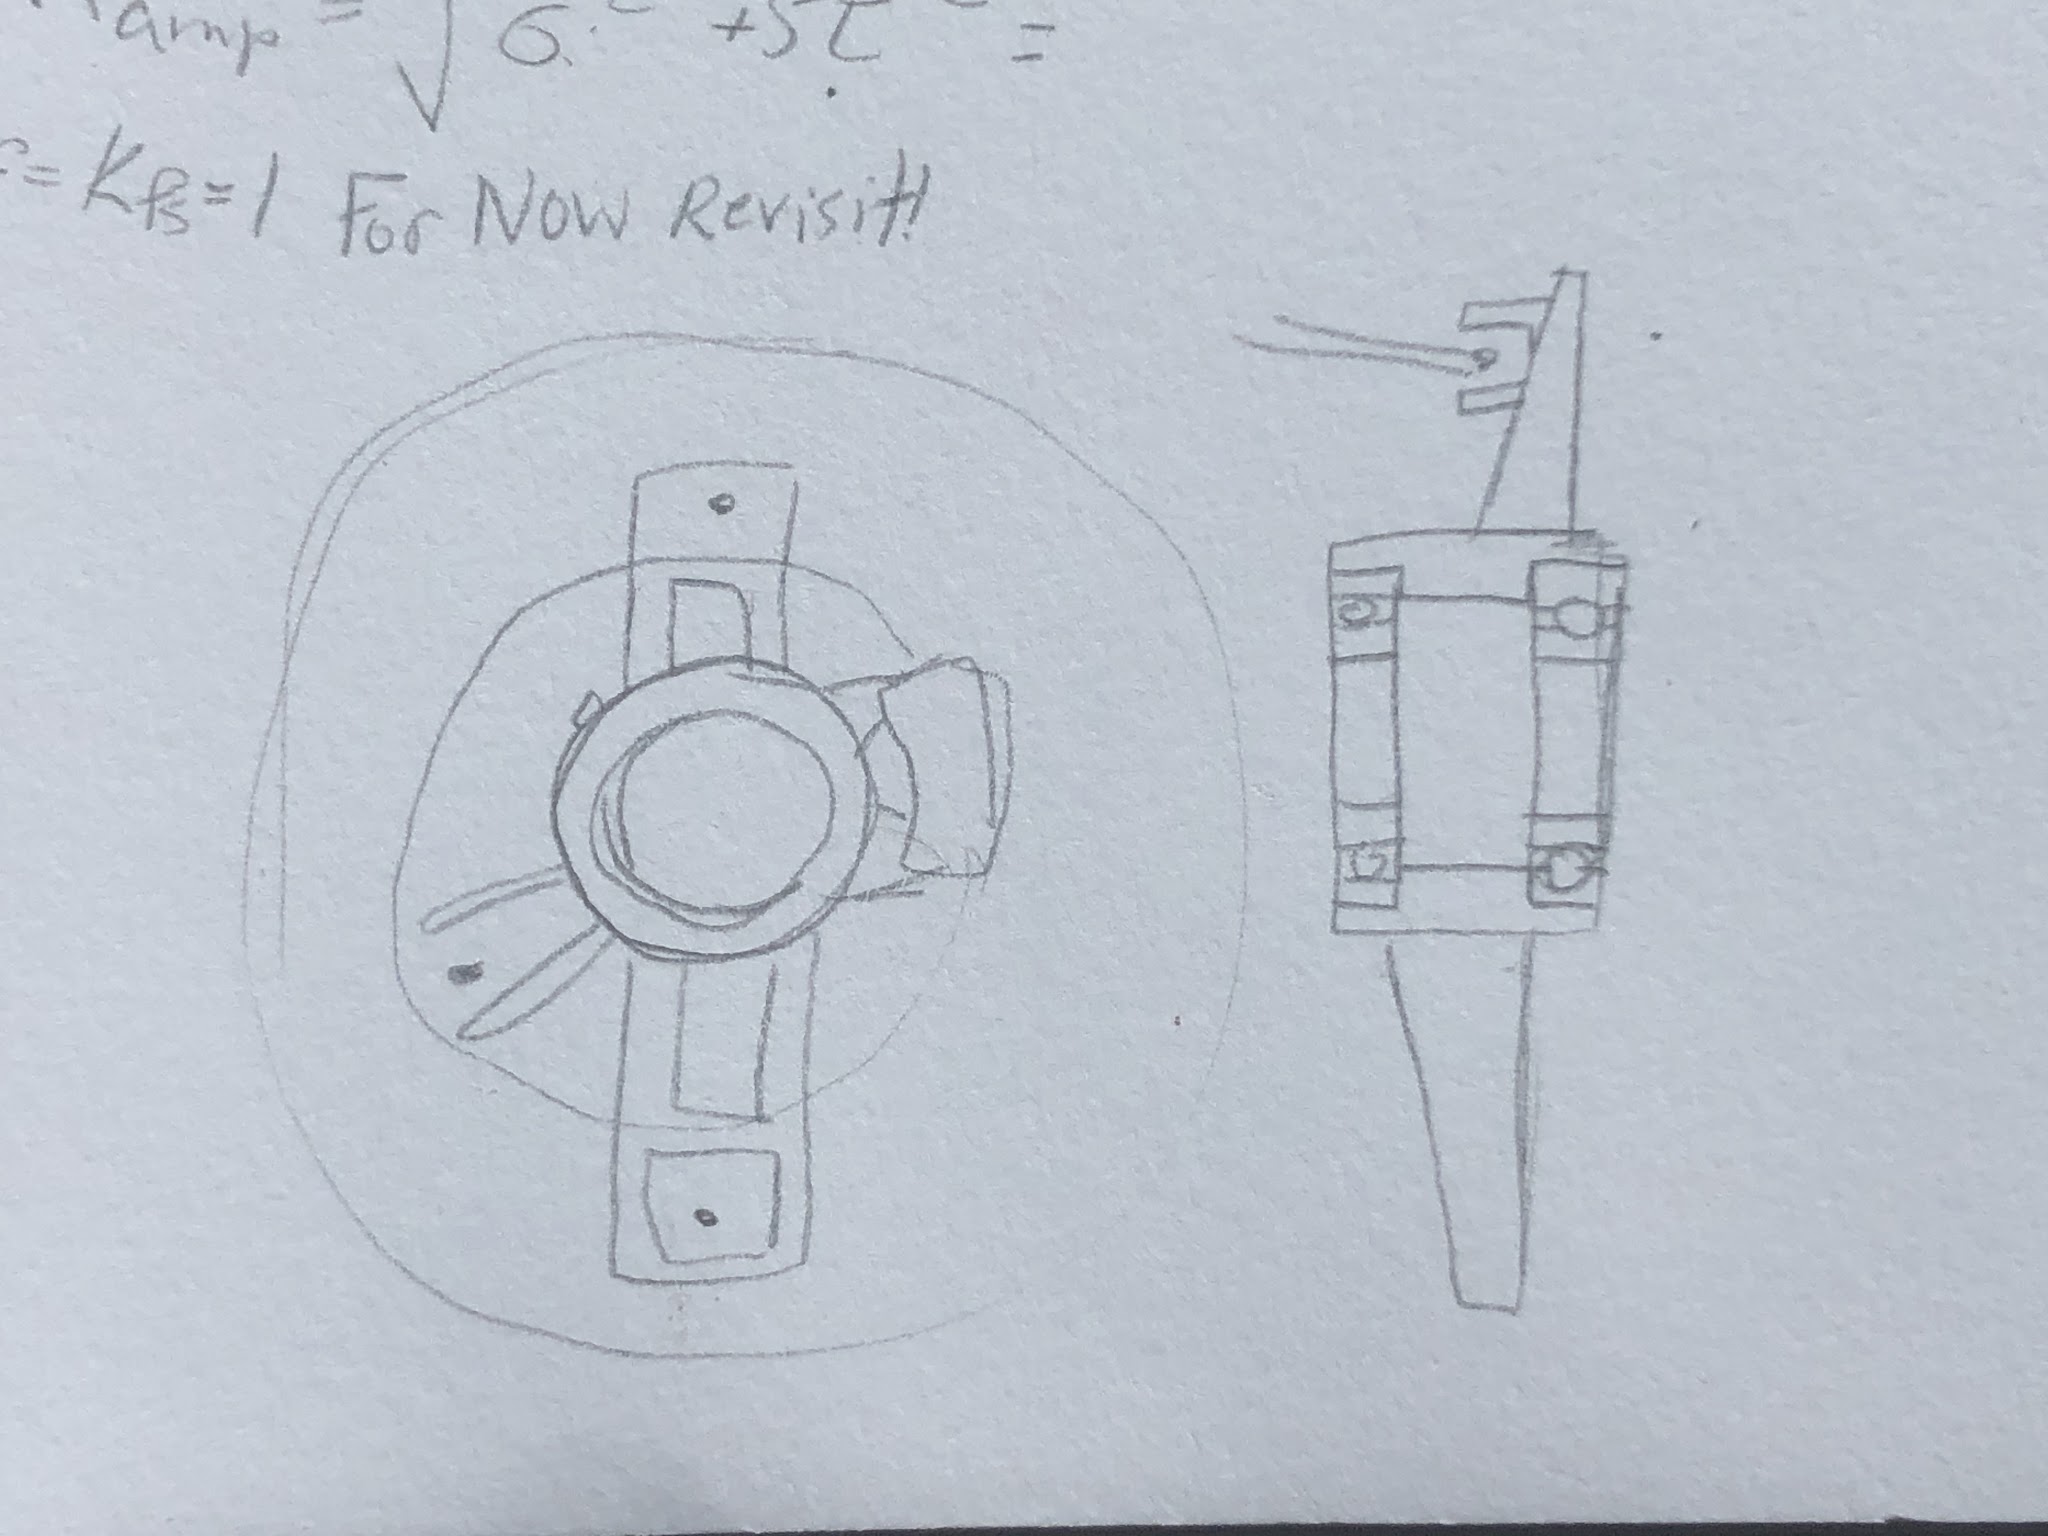 amp = √ σ² + 3τ² =
= Kfs = 1 For Now Revisit!